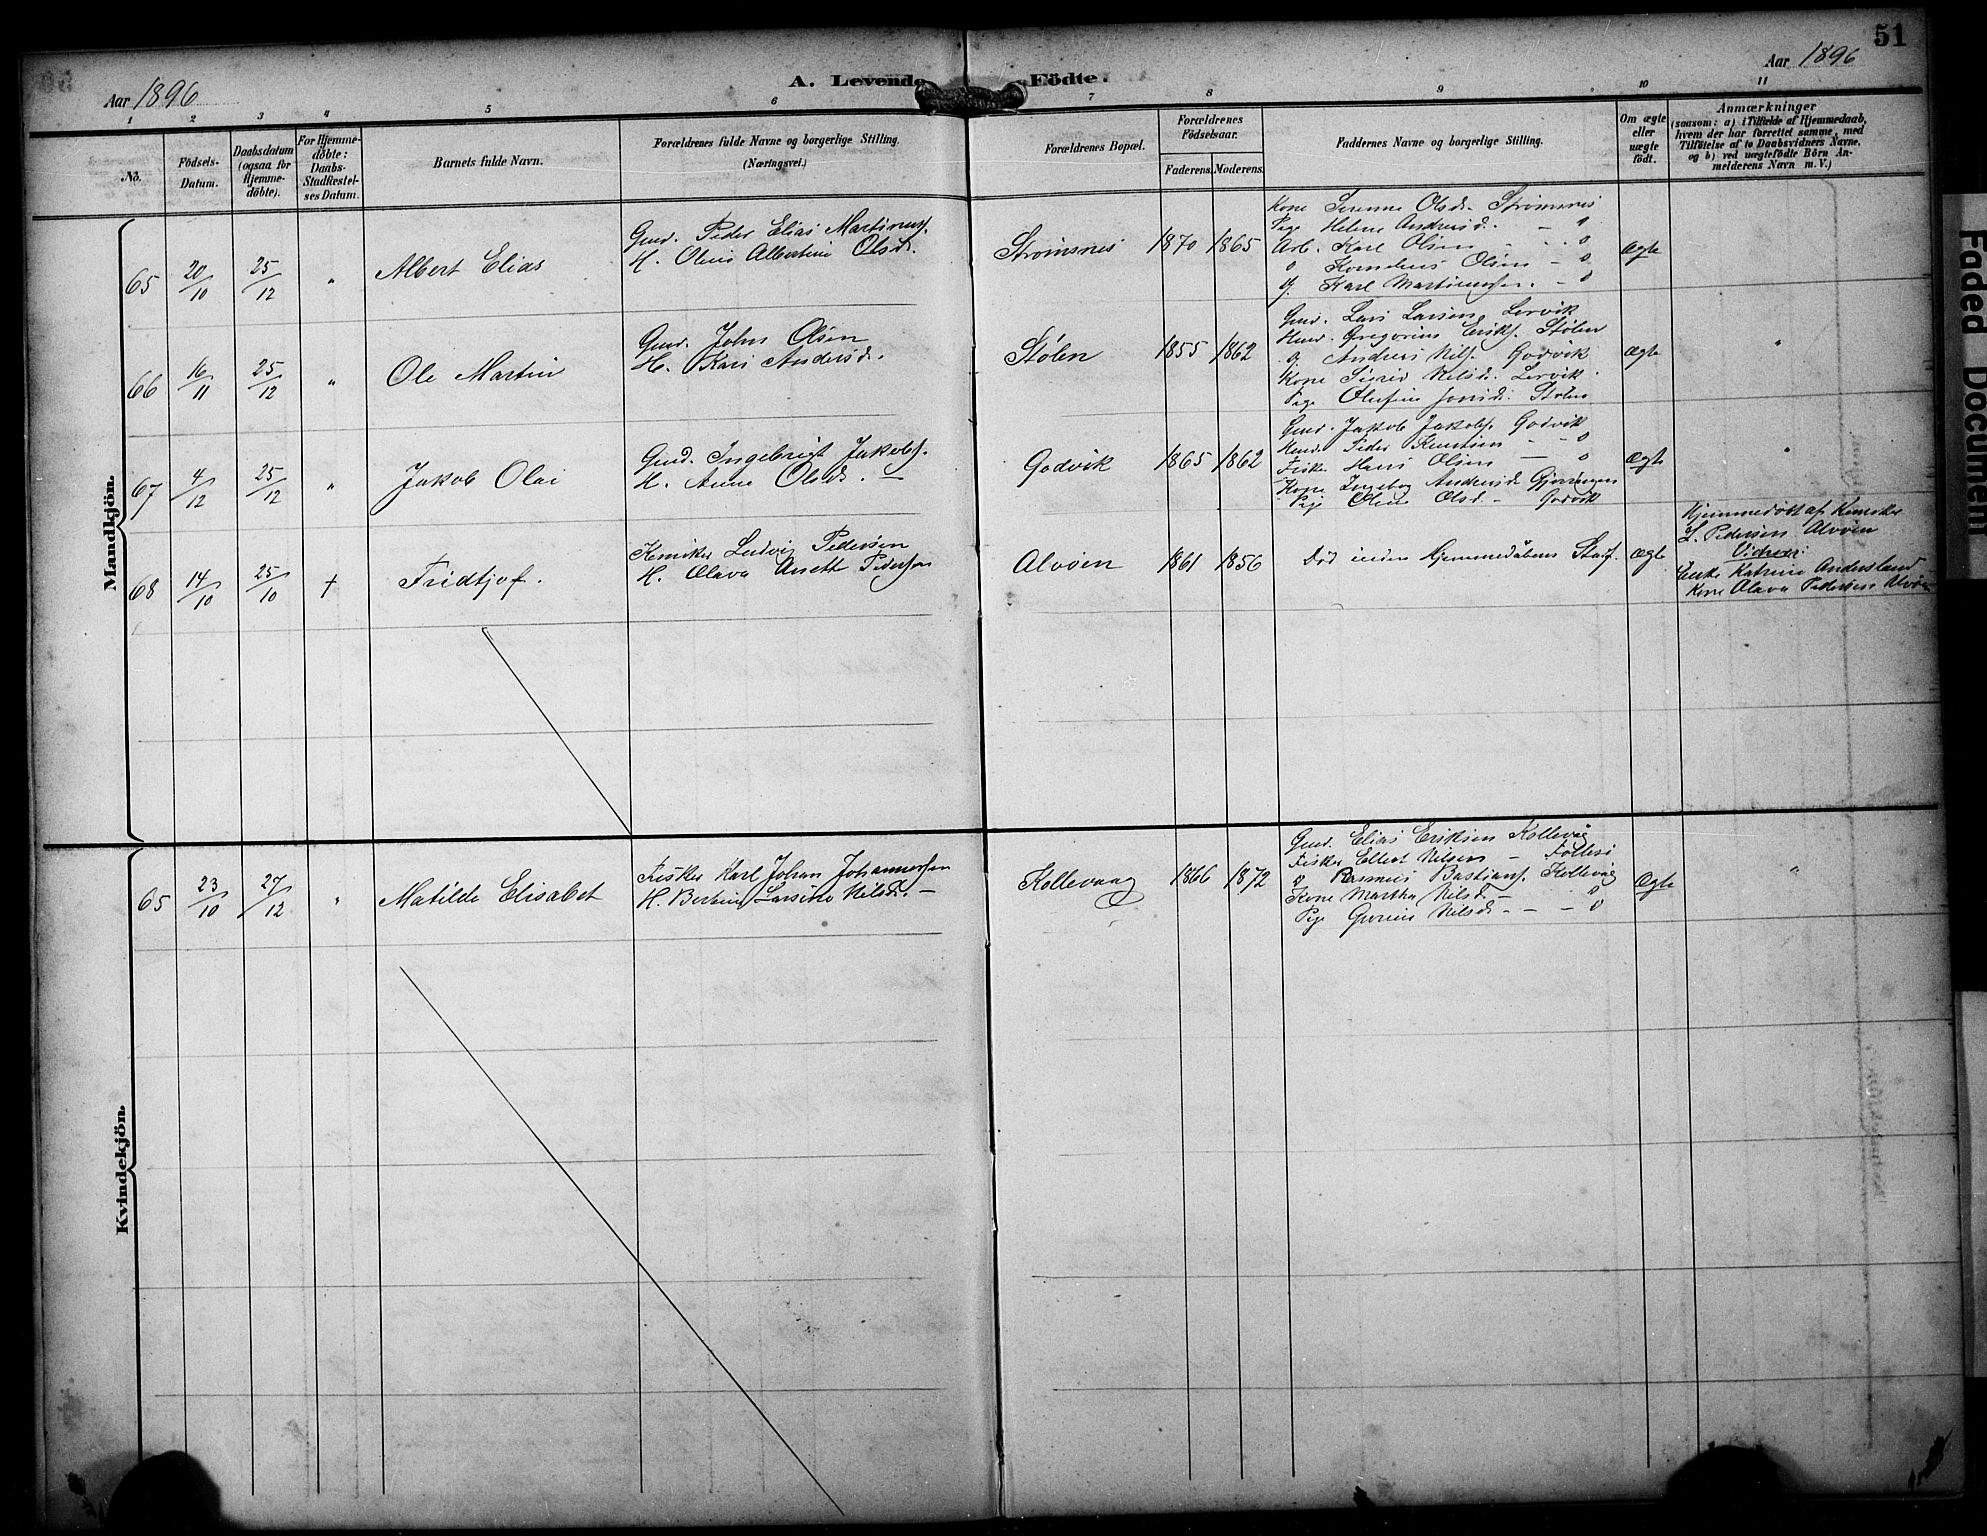 51
Aar 1896
A. Levende Födte.
Aar 1896
1 2 3 4 5 6 7 8 9 10 11
No.
Födsels-Datum.
Daabsdatum (ogsaa for Hjemme-döbte).
For Hjemme-döbte: Daabs-Stadfæstel-ses Datum.
Barnets fulde Navn.
Forældrenes fulde Navne og borgerlige Stilling.
(Næringsvei.)
Forældrenes Bopæl.
Forældrenes Födselsaar.
Faderens. Moderens.
Faddernes Navne og borgerlige Stilling.
Om ægte eller uægte födt.
Anmærkninger
(saasom: a) i Tilfælde af Hjemmedaab,
hvem der har forrettet samme, med
Tilföielse af to Daabsvidners Navne,
og b) ved uægtefödte Börn An-
melderens Navn m. V.)
Mandkjön.
65 20/10 25/12 " Albert Elias
Gmd. Peder Elias Martinuss.
H. Oline Albertine Olsd.
Strømsnes 1870 1865
Kone Serenne Olsd. Strømsnes
Pige Helene Andersd. — "
Arb. Karl Olsen — "
" Kornelius Olsen — "
Karl Martinussen. — "
Ægte
66 16/11 25/12 " Ole Martin
Gmd. Johns Olsen
H. Kari Andersd.
Stølen 1855 1862
Gmd. Lars Larsen Lervik
Gregorius Eriks. Stølen
Andreas Nils. Godvik
Kone Sigrid Nilsd. Lervik.
Pige Olufine Jonsd. Stølen
Ægte "
67 4/12 25/12 " Jakob Olai
Gmd. Ingebrigt Jakobs.
H. Anne Olsd. —
Godvik 1865 1862
Gmd. Jakob Jakobs. Godvik
Peder Knutsen — "
Fisker Hans Olsen — "
Kone Ingebor Andersd.
Pige Oline Olsd. — Godvik
Ægte "
68 14/10 25/10 † Fridtjof.
Kemiker Ludvig Pedersen
H. Olava Anette Pedersen
Alvøen 1861 1856
Død inden Hjemmedåbens Stadf.
Ægte
Hjemmedøbt af Kemiker
L. Pedersen Alvøen
Vidner:
Enke Katrine Andersland
Kone Olava Pedersen Alvøen
Kvindekjön.
65 23/10 27/12 " Matilde Elisabet
Fisker Karl Johan Johannessen
H. Bertine Larsine Nilsd. —
Kollevaag 1866 1872
Gmd. Elias Eriksen Kollevåg
Fisker Ellert Nilsen — Follesø
" Rasmus Bastians. Kollevåg
Kone Martha Nilsd. — "
Pige Gurine Nilsd. — — "
Ægte "
Faded Document